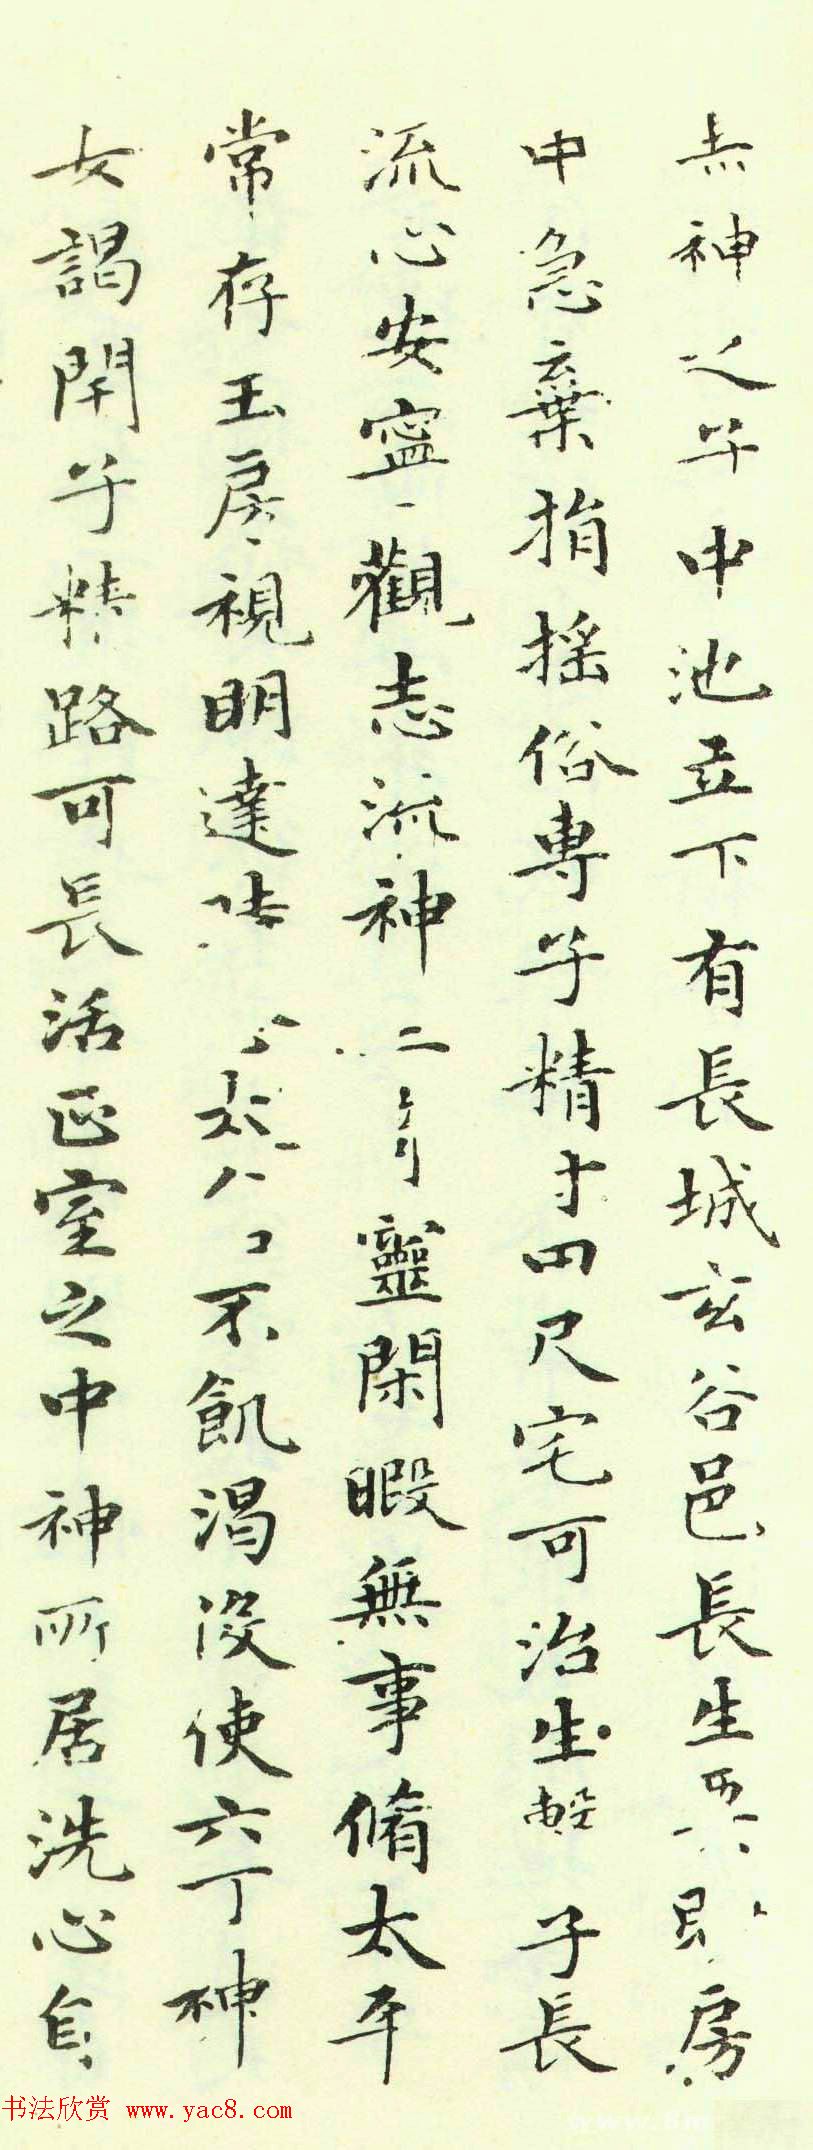 赤神之子中池立下有長城玄谷邑長生房
中急棄捐搖俗專子精寸田尺宅可治生子長
流心安寧觀志流神靈閑暇無事脩太平
常存玉房視明達不飢渴沒使六丁神
女謁閇子精路可長活正室之中神所居洗心自
书法欣赏 www.yac8.com